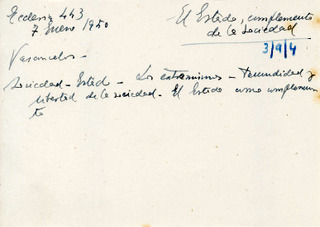 Ecclesia 443
7 Enero 1950
El Estado, complemento
de la sociedad
3/9/4
Sociedad - Estado - Los extremismos - Fecundidad y
libertad de la sociedad - El Estado como complemen
to